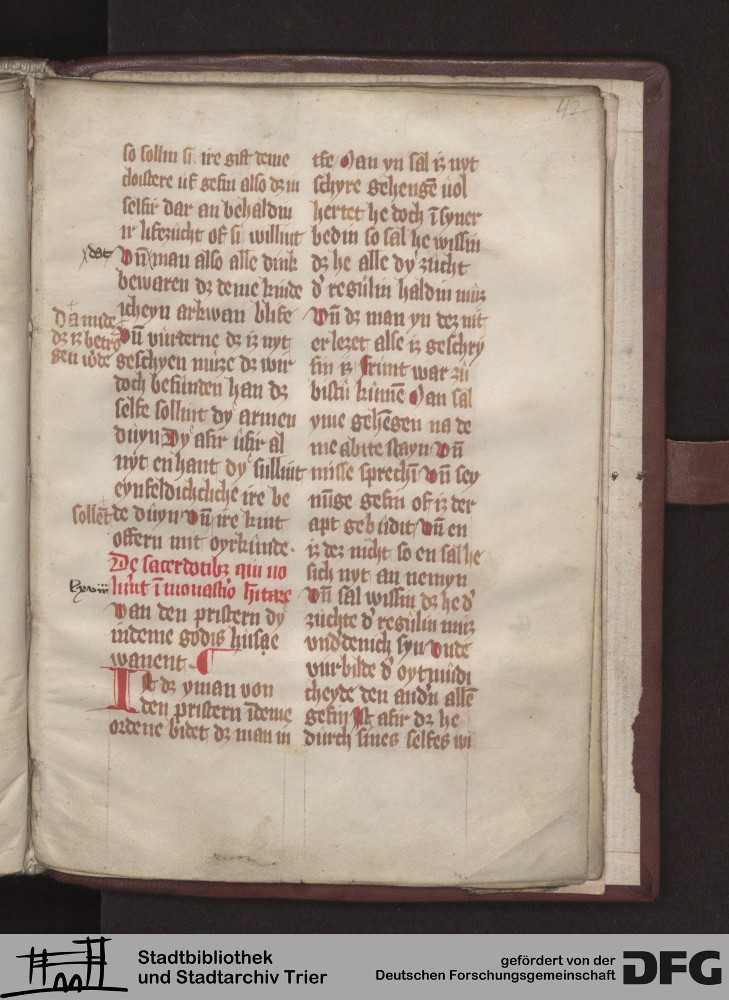 42
so sollin si ire gift deme
cloistere uf gebin also dz in
selbir dar an behaldin
ir libezucht of si willint
dat
Vn̄ man also alle dink
bewaren dz deme kinde
icheyn arkwan blibe
Vn̄ vinderne dz iz nyt
geschyen muze dz wir
doch befunden han dz
selbe sollint dy armen
duyn Dy abir ubir al
nyt en hant dy sullint
eynfeldichcliche ire be
sollēt
de duyn Vn̄ ire kint
offern mit oyrkunde.
De sacerdotibz qui uo
lxviii
lūnt ī monast'io h'itare
Van den pristern dy
indeme godis huse
wanent
Ist dz yman von
den pristern īdeme
ordene bidet dz man in
tfe Man yn sal iz nyt
schyre gehengē uol
hertet he doch ī syner
bedin so sal he wissin
dz he alle dy zucht
d' regulin haldin muz
Vn̄ dz man yn dez nit
erlezet alse iz geschry
bin iz frunt war zu
bistu kumē Man sal
yme gehēgen na de
me abite stayn Vn̄
misse sprechī Vn̄ sey
nūge gebin of iz der
apt gebudit Vn̄ en
iz dez nicht so en sal he
sich nyt an nemyn
Vn̄ sal wissin dz he d'
zuchte d' regulin muz
vnd'denich syn Vnde
vurbilde d' oytmūdi
cheyde den and'n allē
gebin Ist abir dz he
durch sines selbes wi
Stadtbibliothek
und Stadtarchiv Trier
gefördert von der
Deutschen Forschungsgemeinschaft
DFG